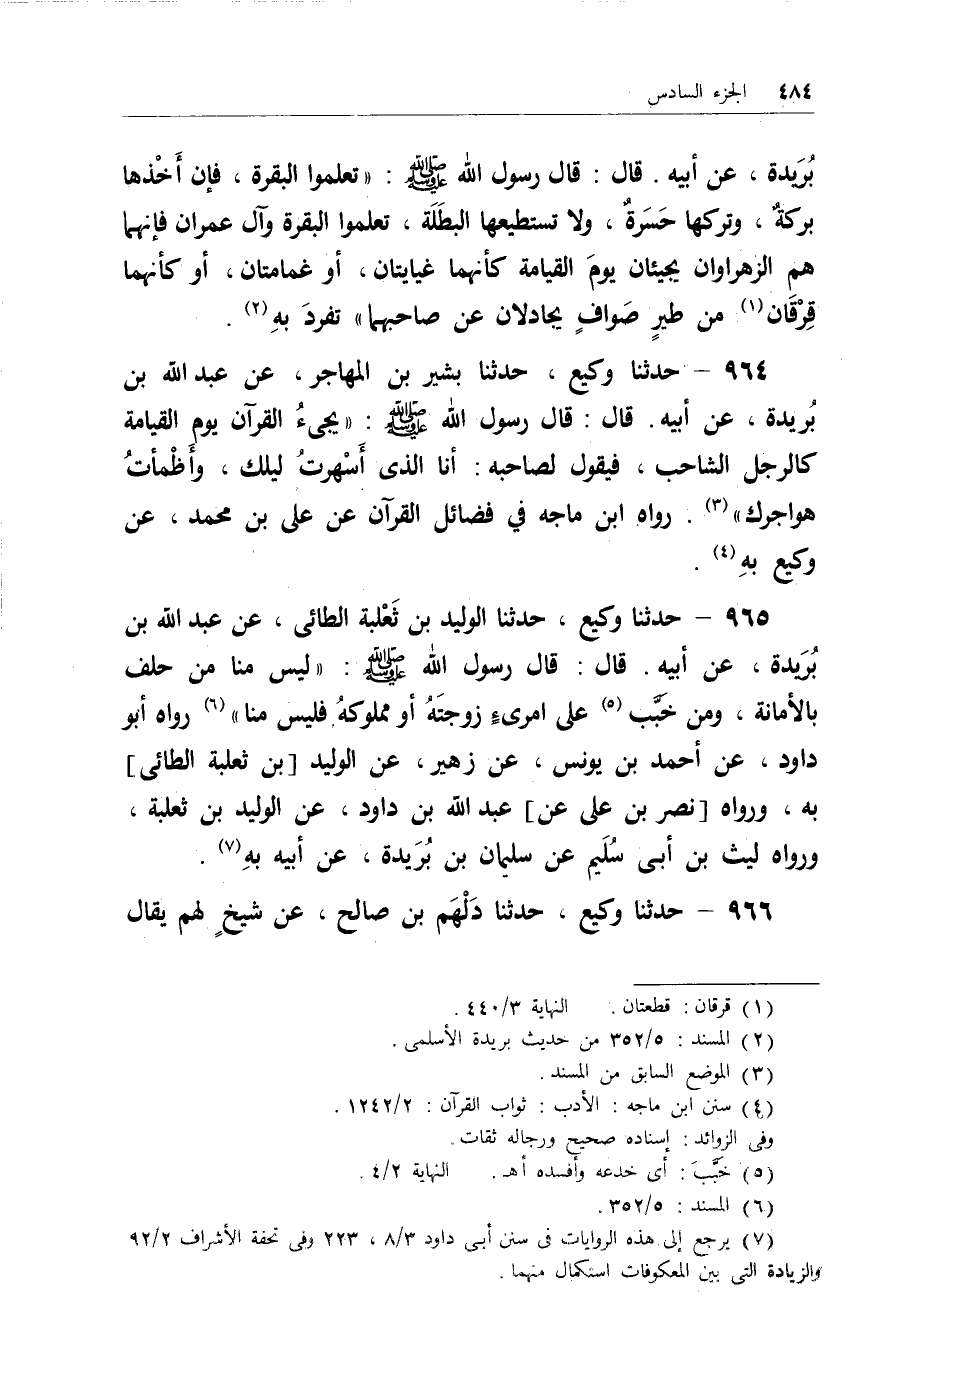 ٤٨٤ الجزء السادس
بُرَيدة ، عن أبيه . قال : قال رسول الله ﷺ : «تعلموا البقرة ، فإن أَخْذها
بركةٌ ، وتركها حَسَرةٌ ، ولا تستطيعها البطَلَة ، تعلموا البقرة وآل عمران فإنهما
هم الزهراوان يجيئان يومَ القيامة كأنهما غيايتان ، أو غمامتان ، أو كأنهما
قِرْقَان(١) من طيرٍ صَوافٍ يجادلان عن صاحبهما» تفردَ بهِ(٢) .
٩٦٤ – حدثنا وكيع ، حدثنا بشير بن المهاجر ، عن عبد الله بن
بُريدة ، عن أبيه . قال : قال رسول الله ﷺ : «يجيءُ القرآن يوم القيامة
كالرجل الشاحب ، فيقول لصاحبه : أنا الذى أَسْهرتُ ليلك ، وأَظْمأتُ
هواجرك»(٣) . رواه ابن ماجه في فضائل القرآن عن على بن محمد ، عن
وكيع بهِ(٤) .
٩٦٥ – حدثنا وكيع ، حدثنا الوليد بن ثَعْلبة الطائى ، عن عبد الله بن
بُرَيدة ، عن أبيه . قال : قال رسول الله ﷺ : «ليس منا من حلف
بالأمانة ، ومن خَبَّب(٥) على امرىءٍ زوجتَهُ أو مملوكهُ فليس منا»(٦) رواه أبو
داود ، عن أحمد بن يونس ، عن زهير ، عن الوليد [بن ثعلبة الطائى]
به ، ورواه [نصر بن على عن] عبد الله بن داود ، عن الوليد بن ثعلبة ،
ورواه ليث بن أبى سُلَيم عن سليمان بن بُرَيدة ، عن أبيه بهِ(٧) .
٩٦٦ – حدثنا وكيع ، حدثنا دَلْهَم بن صالح ، عن شيخٍ لهم يقال
(١) قرقان : قطعتان . النهاية ٤٤٠/٣ .
(٢) المسند : ٣٥٢/٥ من حديث بريدة الأسلمى .
(٣) الموضع السابق من المسند .
(٤) سنن ابن ماجه : الأدب : ثواب القرآن : ١٢٤٢/٢ .
وفى الزوائد : إسناده صحيح ورجاله ثقات .
(٥) خَبَّبَ : أى خدعه وأفسده أهـ . النهاية ٤/٢ .
(٦) المسند : ٣٥٢/٥ .
(٧) يرجع إلى هذه الروايات فى سنن أبى داود ٨/٣ ، ٢٢٣ وفى تحفة الأشراف ٩٢/٢
والزيادة التى بين المعكوفات استكمال منهما .